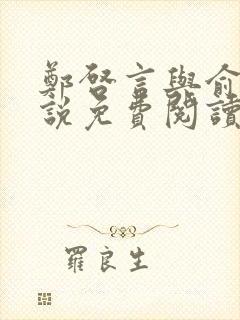 鄭啓言與俞
說免費閱讀
羅良生